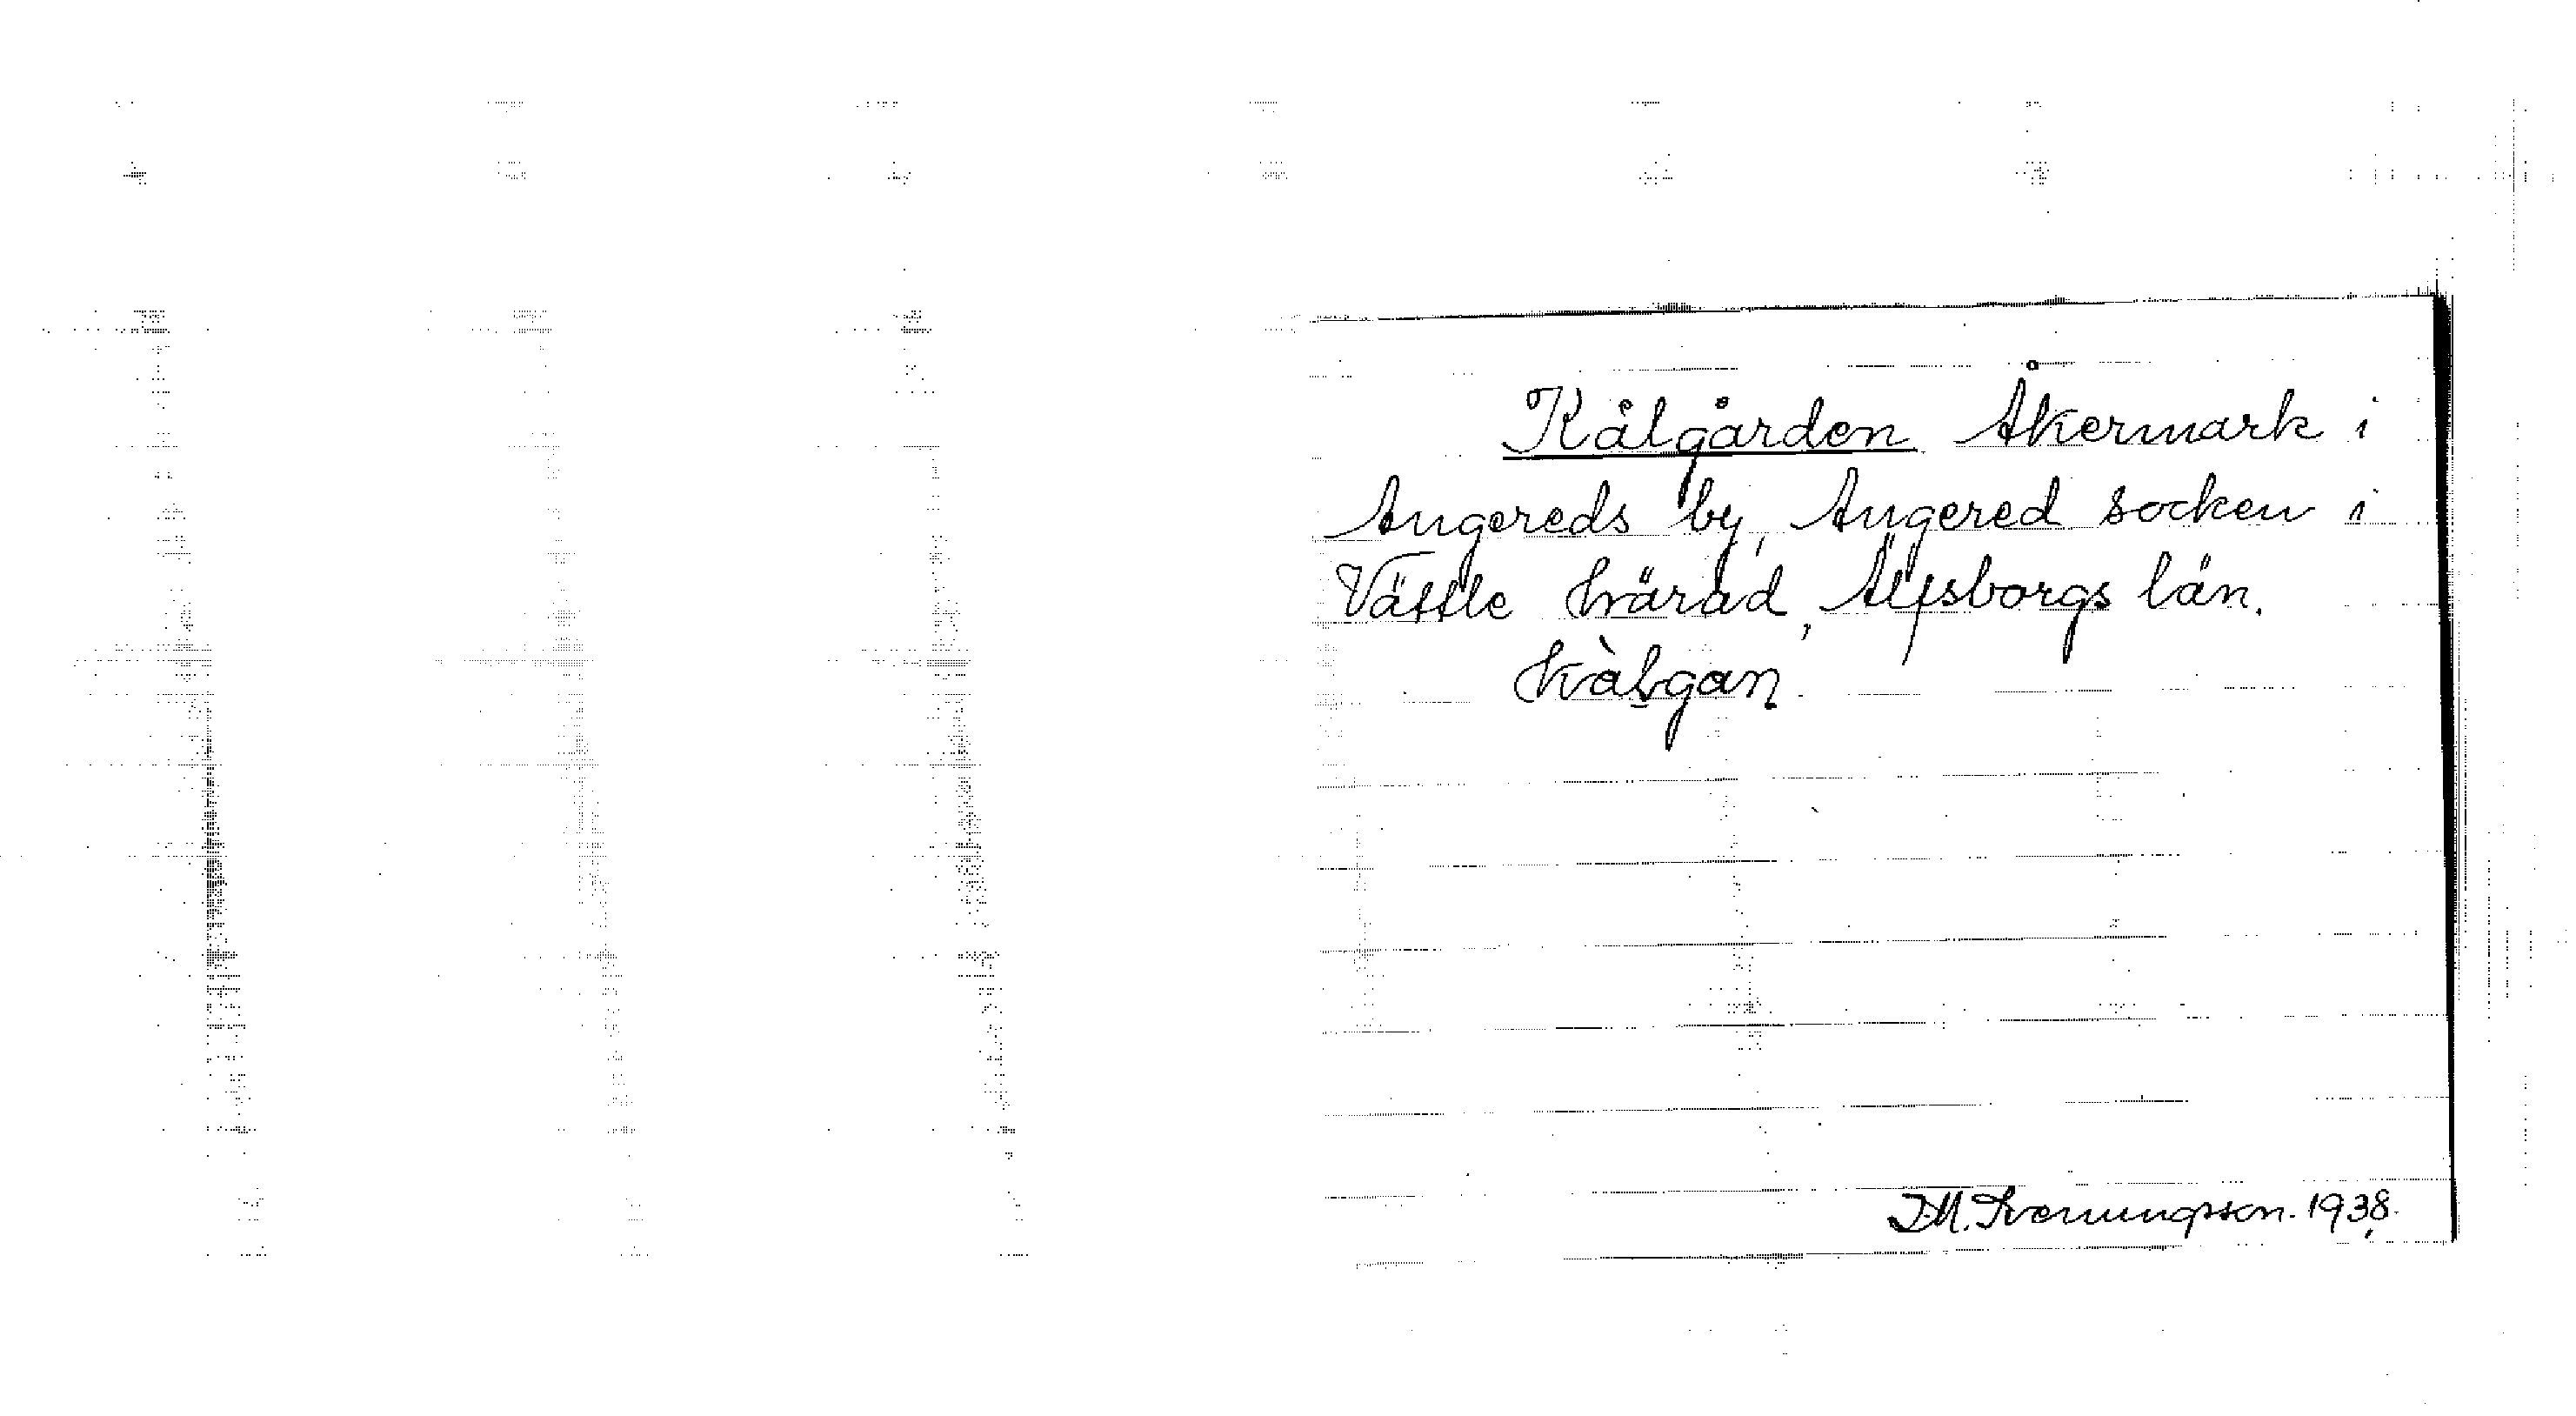 Kålgården Åkermark i
Angereds by, Angered socken i
Vättle härad, Älfsborgs län.
kàlgan.
J.M. Svenningsson. 1938.